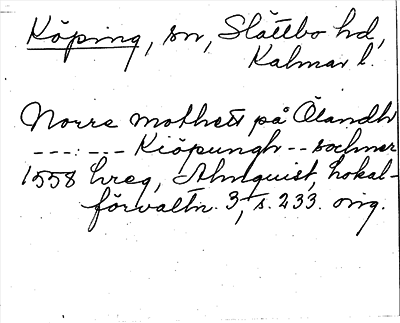 Köping, sn, Slättbo hd,
Kalmar l.
Norre mothett på Ölandh
---:--- Kiöpungh -- sochner
1558 hreg, Almquist, Lokal-
förvaltn. 3, s. 233. orig.